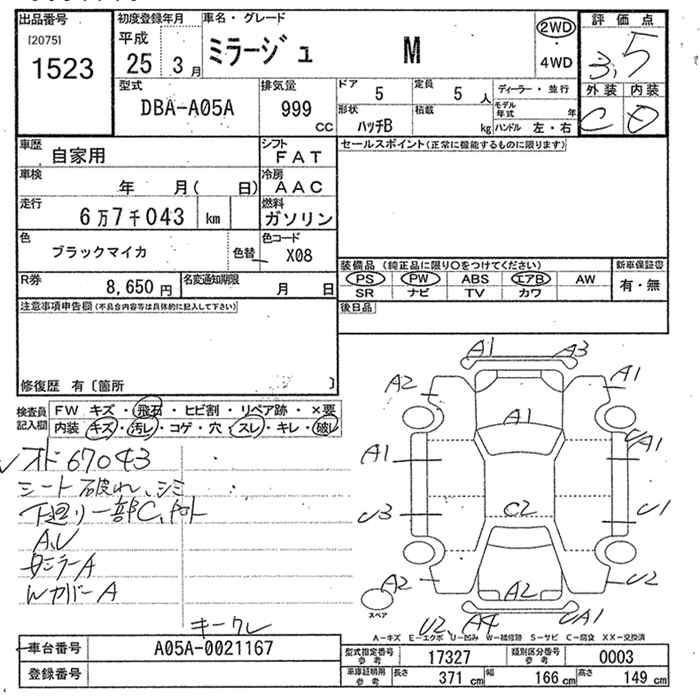 出品番号 初度登録年月 車名・グレード 評価点
[2075] 平成 ミラージュ M 2WD 3.5
1523 25 3月 4WD
型式 排気量 ドア 5 定員 5人 ディーラー・並行 外装 内装
DBA-A05A 999 cc 形状 ハッチB 積載 kg モデル年式 年 C D
ハンドル 左・右
車歴 自家用 シフト FAT セールスポイント(正常に機能するものに限ります)
車検 年 月( 日) 冷房 AAC
走行 6万7千043 km 燃料 ガソリン
色 ブラックマイカ 色替 色コード X08
装備品(純正品に限り○をつけてください) 新車保証書
R券 8,650円 名変通知期限 月 日 PS PW ABS エアB AW 有・無
SR ナビ TV カワ
注意事項申告欄(不具合内容等は具体的に記入して下さい) 後日品
修復歴 有〔箇所 〕
検査員記入欄 FW キズ・飛石・ヒビ割・リペア跡・×要
内装 キズ・汚レ・コゲ・穴・スレ・キレ・破レ
オド67043
シート破れ、シミ
下廻り一部C、凹
A,U
Wカバー A
キークレ
A1 A3
A2 A1
A1
A1 A1
U3 C2 U1
A2 A2 U2
スペア
U2, A4 UA1
A-キズ E-エクボ U-凹み W-補修跡 S-サビ C-腐食 XX-交換済
車台番号 A05A-0021167
登録番号
型式指定番号 参考 17327 類別区分番号 参考 0003
車庫証明用 参考 長さ 371 cm 幅 166 cm 高さ 149 cm